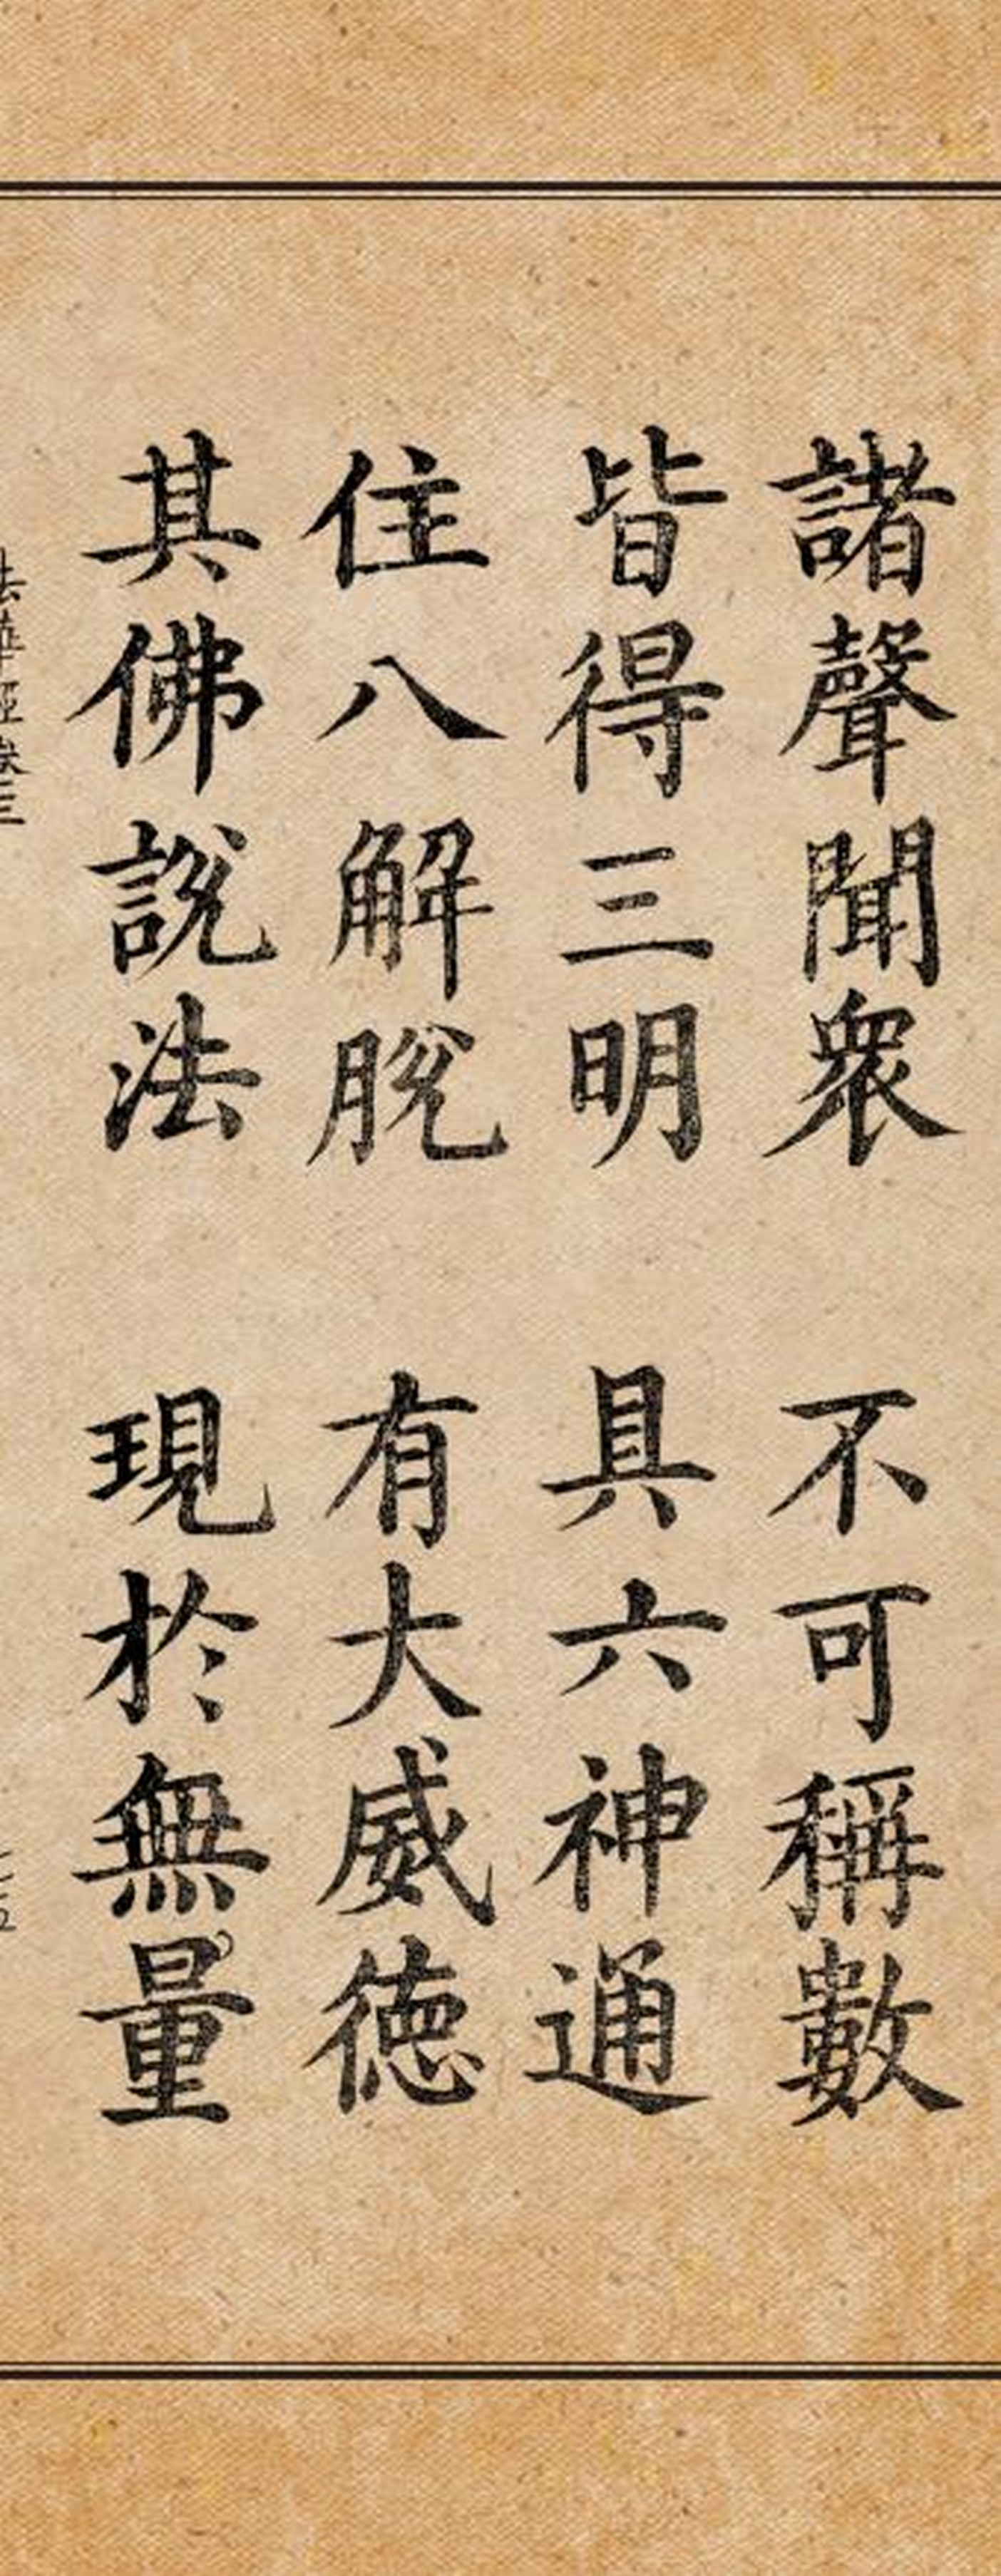 諸聲聞衆 不可稱數
皆得三明 具六神通
住八解脫 有大威德
其佛說法 現於無量
法華經卷三